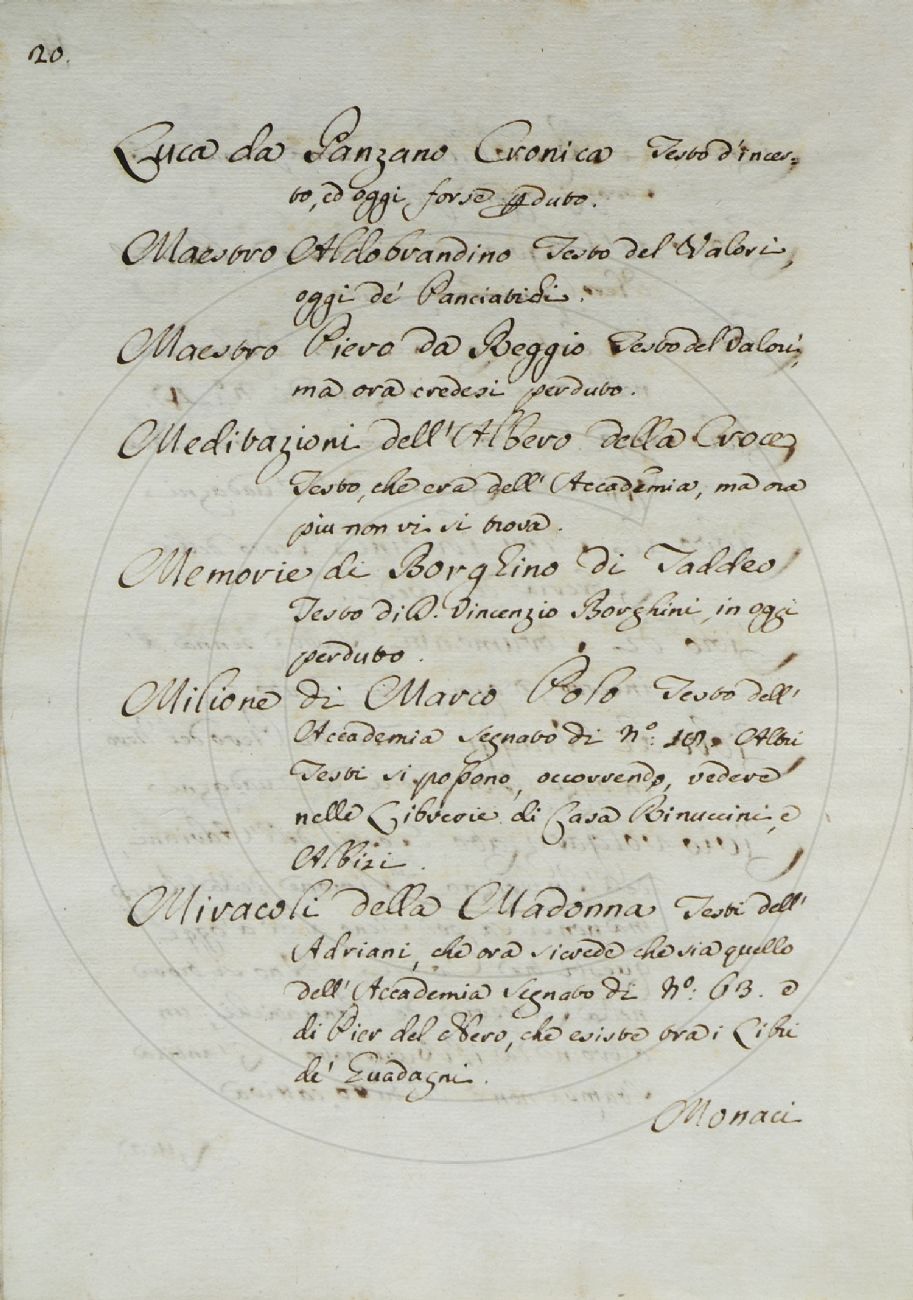 20.
Luca da Panzano Cronica Testo d'incer=
to, ed oggi forse pduto.
Maestro Aldobrandino Testo del Valori,
oggi de' Panciatichi.
Maestro Piero da Reggio Testo del Valori,
ma ora credesi perduto.
Meditazioni dell'Albero della Croce
Testo, che era dell'Accademia, ma ora
piu non vi si trova.
Memorie di Borghino di Taddeo
Testo di D. Vincenzio Borghini, in oggi
perduto.
Milione di Marco Polo Testo dell'
Accademia segnato di N.º: Altri
Testi si possono, occorrendo, vedere
nelle Librerie di Casa Rinuccini, e
Albizi.
Miracoli della Madonna Testi dell'
Adriani, che ora si crede che sia quello
dell'Accademia segnato di N.º: 63. e
di Pier del Nero, che esiste tra i Libri
de' Guadagni.
Monaci